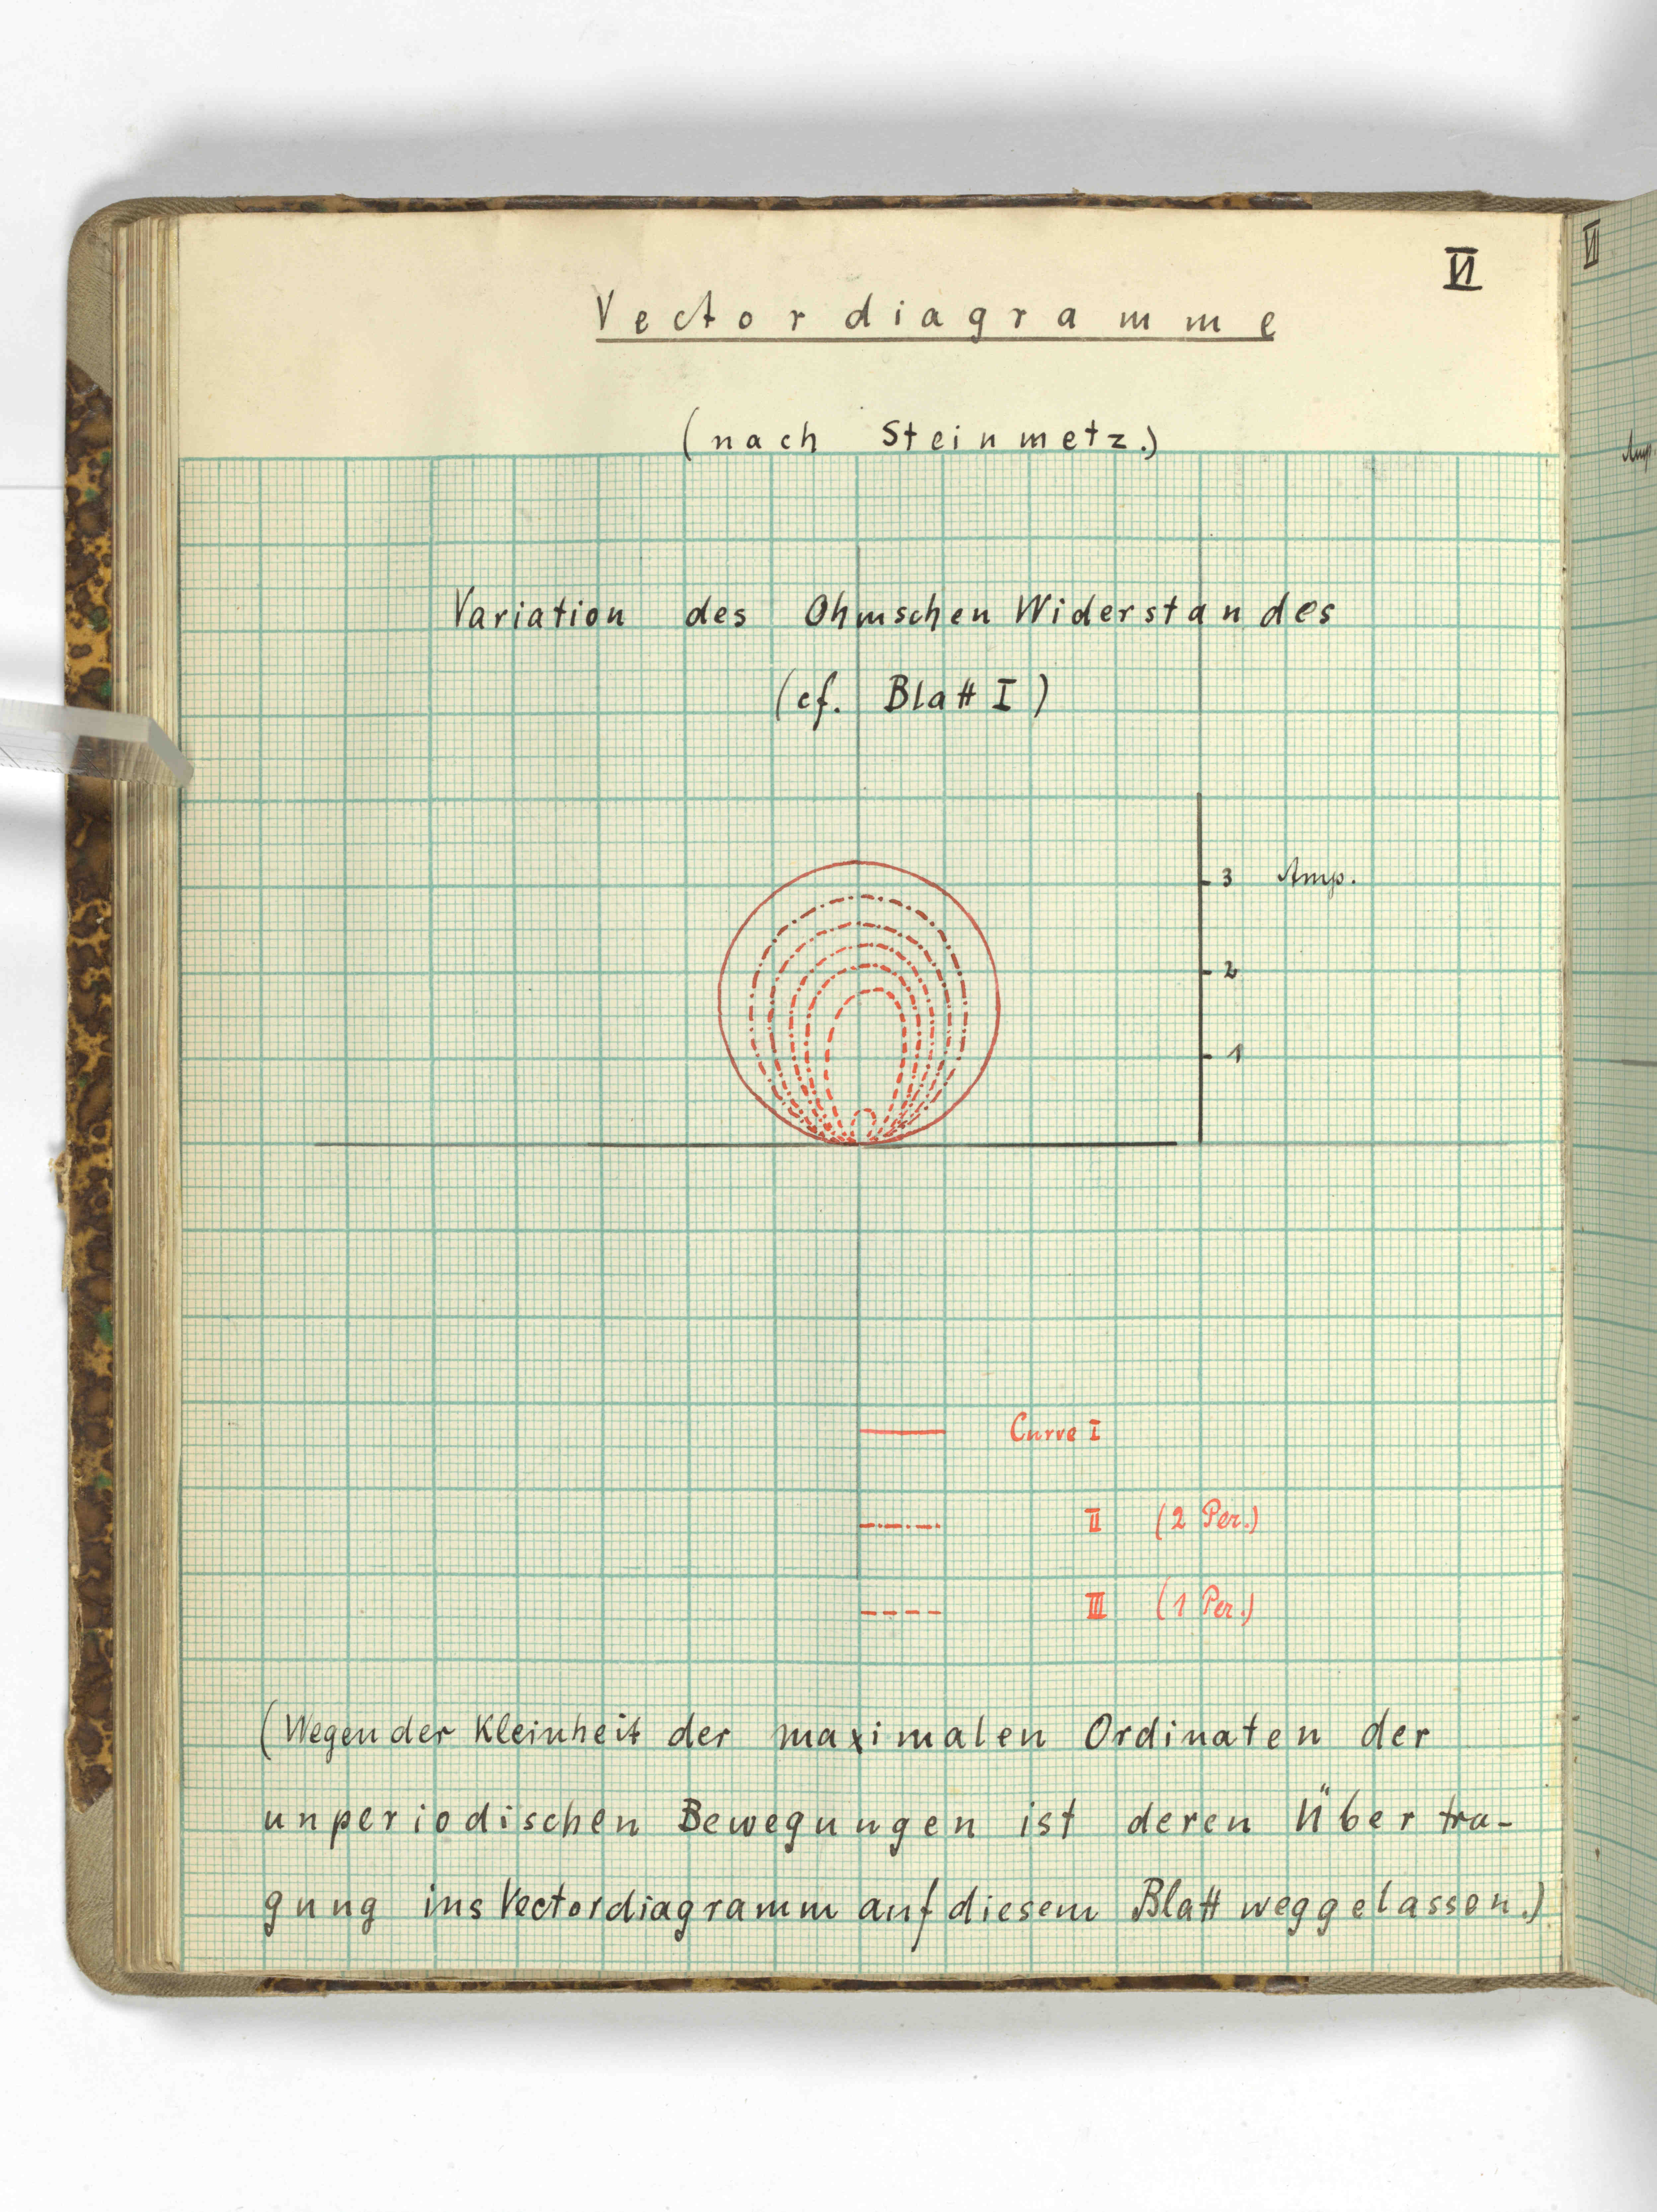 VI
VII
Vectordiagramme
(nach Steinmetz.)
Amp.
Variation des Ohmschen Widerstandes
(cf. Blatt I)
3 Amp.
2
1
Curve I
II (2 Per.)
III (1 Per.)
(Wegen der Kleinheit der maximalen Ordinaten der
unperiodischen Bewegungen ist deren Übertra-
gung ins Vectordiagramm auf diesem Blatt weggelassen.)